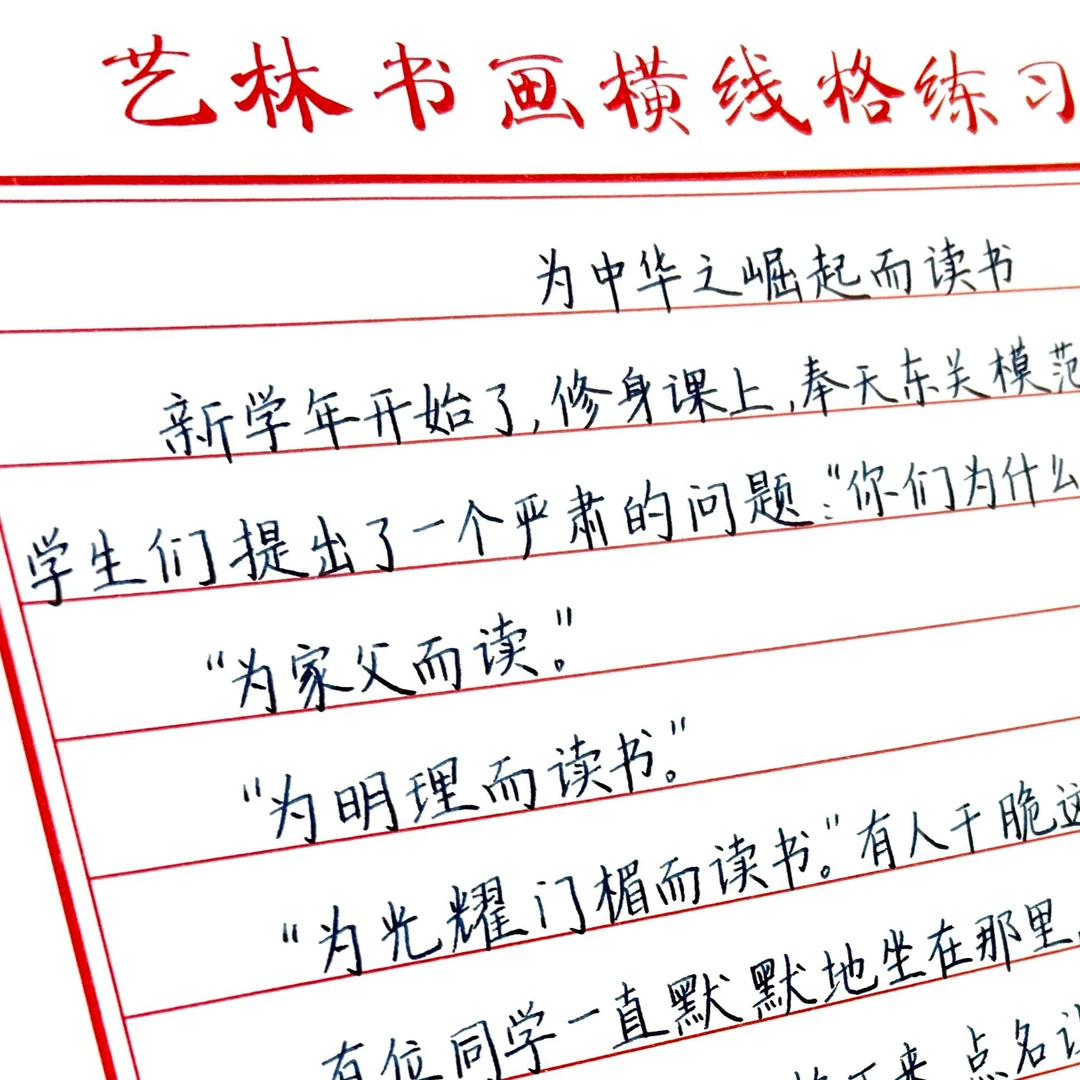 艺林书画横线格练习
为中华之崛起而读书
新学年开始了,修身课上,奉天东关模范
学生们提出了一个严肃的问题:"你们为什么
"为家父而读。"
"为明理而读书。"
"为光耀门楣而读书。"有人干脆这
有位同学一直默默地坐在那里,
来,点名让